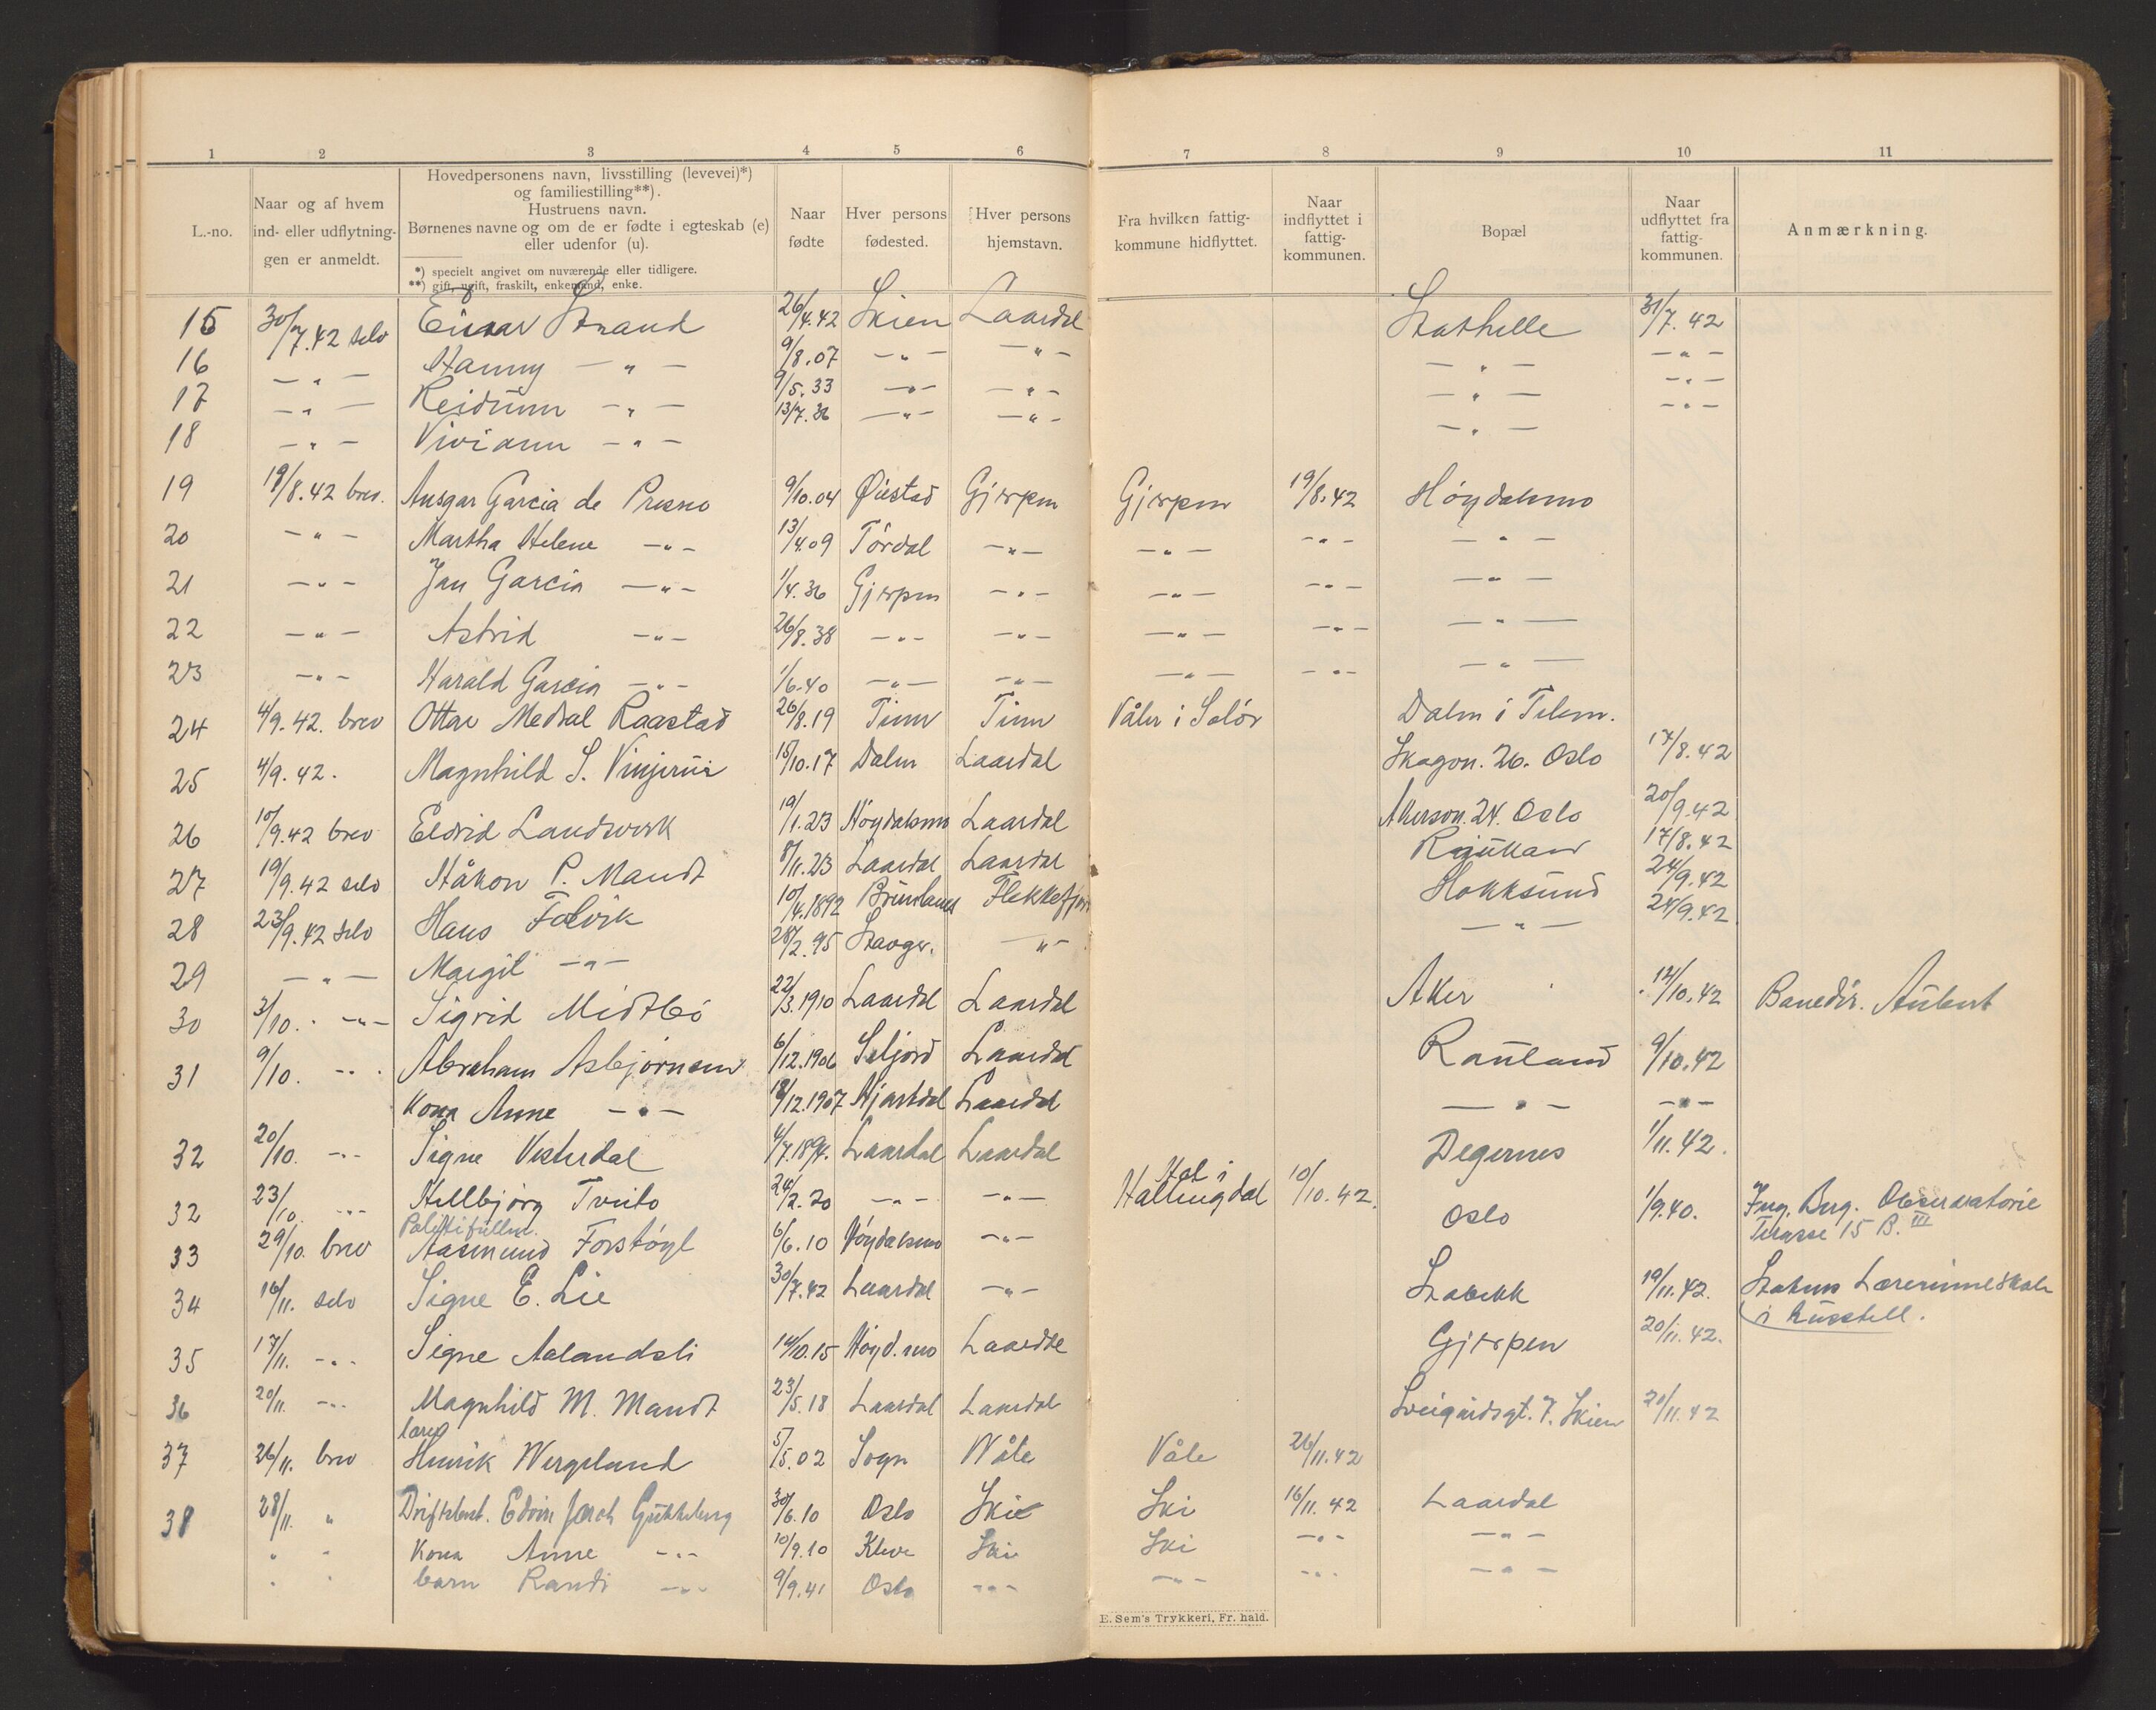 1 2 3 4 5 6 7 8 9 10 11
L.-no.
Naar og af hvem
ind- eller udflytnin-
gen er anmeldt.
Hovedpersonens navn, livsstilling (levevei)*)
og familiestilling**).
Hustruens navn.
Børnenes navne og om de er fødte i egteskab (e)
eller udenfor (u).
*) specielt angivet om nuværende eller tidligere.
**) gift, ugift, fraskilt, enkemand, enke.
Naar
fødte
Hver persons
fødested.
Hver persons
hjemstavn.
Fra hvilken fattig-
kommune hidflyttet.
Naar
indflyttet i
fattig-
kommunen.
Bopæl
Naar
udflyttet fra
fattig-
kommunen.
Anmærkning.
15 30/7.42 selv Einar Strand 26/4.42 Skien Laardal Stathelle 31/7.42
16 —"— Hanny —"— 9/8.07 —"— —"— —"— —"—
17 —"— Reidunn —"— 9/5.33 —"— —"— —"— —"—
18 —"— Viviann —"— 13/7.36 —"— —"— —"— —"—
19 19/8.42 brev. Ansgar Garcia de Presno 9/10.04 Øiestad Gjerpen Gjerpen 19/8.42 Høydalsmo
20 —"— Martha Helene —"— 13/4.09 Tørdal —"— —"— —"— —"—
21 —"— Jan Garcia —"— 1/4.36 Gjerpen —"— —"— —"— —"—
22 —"— Astrid —"— 26/8.38 —"— —"— —"— —"— —"—
23 —"— Harald Garcia —"— 1/6.40 —"— —"— —"— —"— —"—
24 4/9.42. brev Ottar Medal Raastad 26/8.19 Tinn Tinn Våler i Solør Dalen i Telem.
25 4/9.42. Magnhild S. Vinjerui 15/10.17 Dalen Laardal Skogvn. 26. Oslo 17/8.42
26 10/9.42 brev Eldrid Landsverk 19/1.23 Høydalsmo Laardal Akersvn. 24. Oslo 20/9.42
27 19/9.42 selv Håkon P. Mandt 8/11.23 Laardal Laardal Rjukan 17/8.42
28 23/9.42 selv Hans Folvik 10/4.1892 Flekkefjord Hokksund 24/9.42
29 —"— Margit —"— 28/2.95 Stavger. —"— —"— 24/9.42
30 3/10. —"— Sigrid Midtbö 22/3.1910 Laardal Laardal Aker 14/10.42 Banedir. Aubert
31 9/10. —"— Abraham Asbjørnsen 6/12.1906 Seljord Laardal Rauland 9/10.42
Kona Anne —"— 18/12.1907 Hjartdal Laardal —"— —"—
32 20/10. —"— Signe Vesterdal 4/7.1894. Laardal Laardal Degernes 1/11.42.
32 23/10. —"— Hellbjørg Tveito 24/2.20 —"— —"— Hol i Hallingdal 10/10.42. Oslo 1/9.40. Ing. Berg. Observatorie
Terasse 15 B. III
33 29/10. brev Aasmund Forstøyl 6/6.10 Høydalsmo —"—
34 16/11. selv Signe E. Lie 30/7.42 Laardal —"— Stabekk 19/11.42. Statens Lærerinneskole
i husstell.
35 17/11. —"— Signe Aalandsli 14/10.15 Høyd.mo Laardal Gjerpen 20/11.42.
36 20/11. —"— Magnhild M. Mandt 23/5.18 Laardal Laardal Sveigårdsgt. 7. Skien 20/11.42
37 26/11. brev Henrik Wergeland 5/5.02 Sogn Våle Våle 26/11.42
38 28/11. " Edvin Gukkelberg 30/6.10 Oslo Ski Ski 16/11.42 Laardal
" " Kona Anne —"— 10/9.10 Ski Ski —"— —"—
" " barn Randi —"— 9/9.41 Oslo —"— —"— —"— —"—
E. Sem's Trykkeri, Fr. hald.